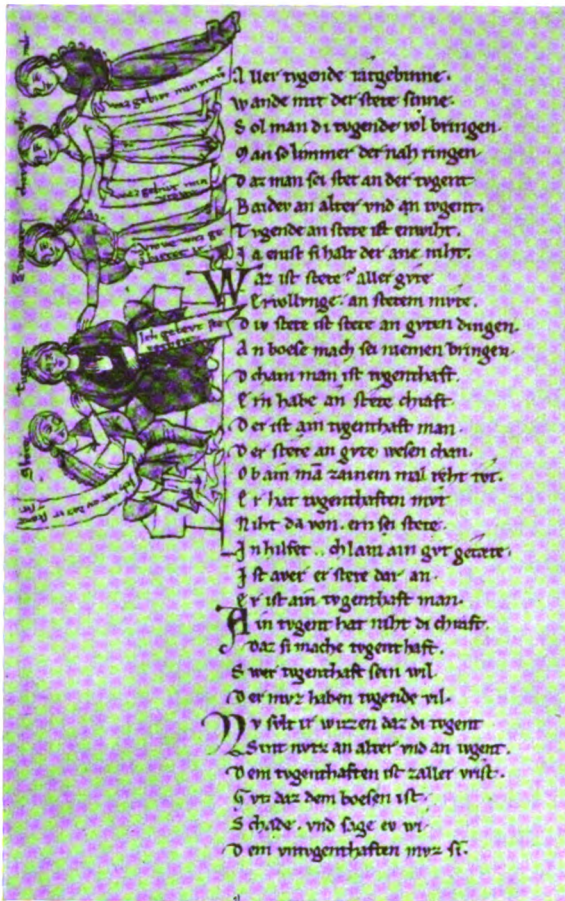 Aller tvgende ratgebinne.
wande mit der stete sinne.
Sol man di tvgende vol bringen.
Man sol immer der nah ringen
Daz man sei stet an der tvgent
Baider an alter vnd an ivgent.
Tvgende an stete ist enwiht.
Ja enist si halt der ane niht.
Waz ist stete aller gvte
Ervollvnge. an stetem mvte.
Div stete ist stete an gvten dingen.
An boese mach sei niemen bringen.
Dchain man ist tvgenthaft.
Ern habe an stete chraft.
Der ist ain tvgenthaft man.
Der stete an gvte wesen chan.
Ob ain mā zainem mal reht tvt.
Er hat tvgenthaften mvt
Niht da von. ern sei stete.
In hilfet .. chlain ain gvt getete.
Ist aver er stete dar an.
Er ist ain tvgenthaft man.
Ain tvgent hat niht di chraft.
Daz si mache tvgenthaft.
Swer tvgenthaft sein wil.
Der mvz haben tvgende vil.
Nv svlt ir wizzen daz di tvgent
Sint nvtz an alter vnd an ivgent.
Dem tvgenthaften ist zaller vrist.
Gvt daz dem boesen ist.
Schade. vnd sage ev wi.
Dem vntvgenthaften mvz si.